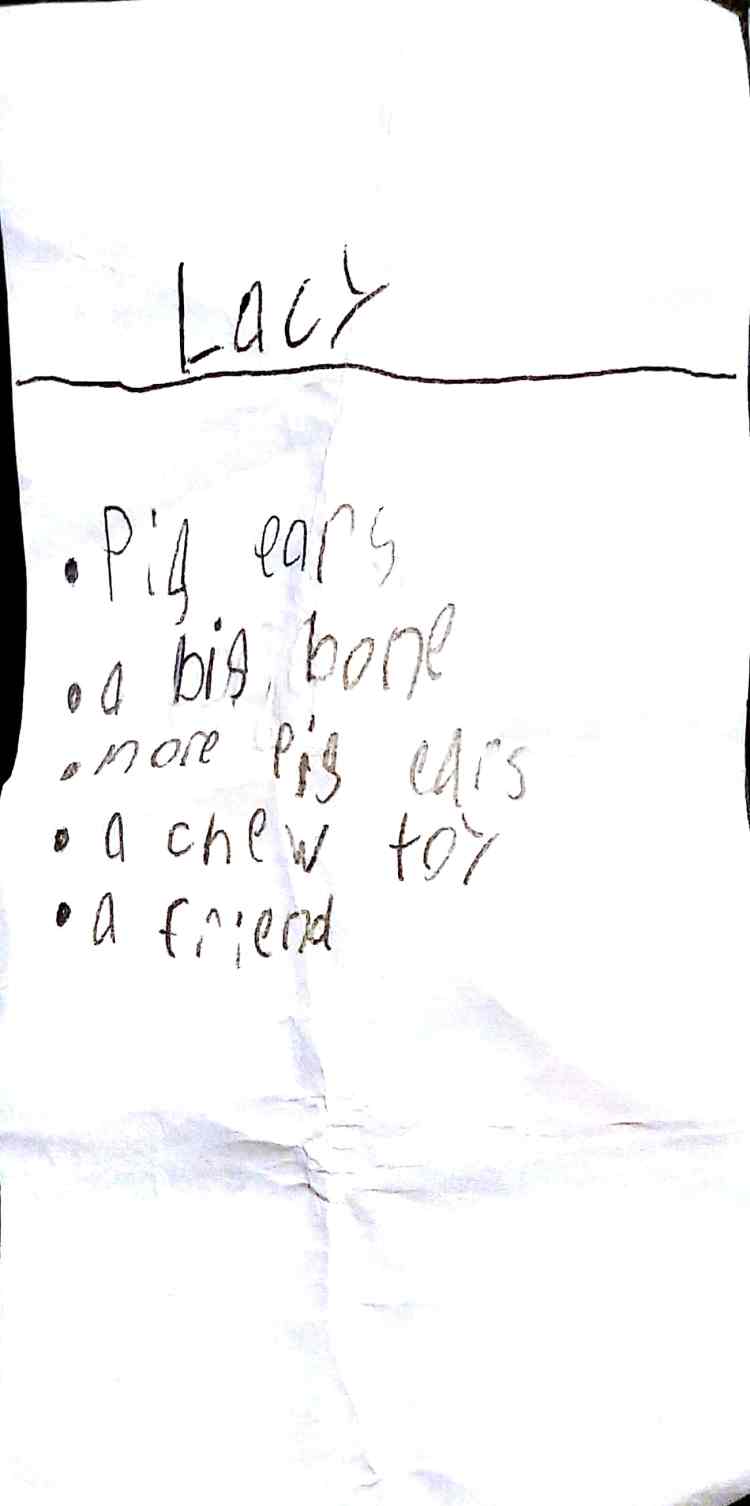 Lacy
• Pig ears
• a big bone
• more Pig ears
• a chew toy
• a friend